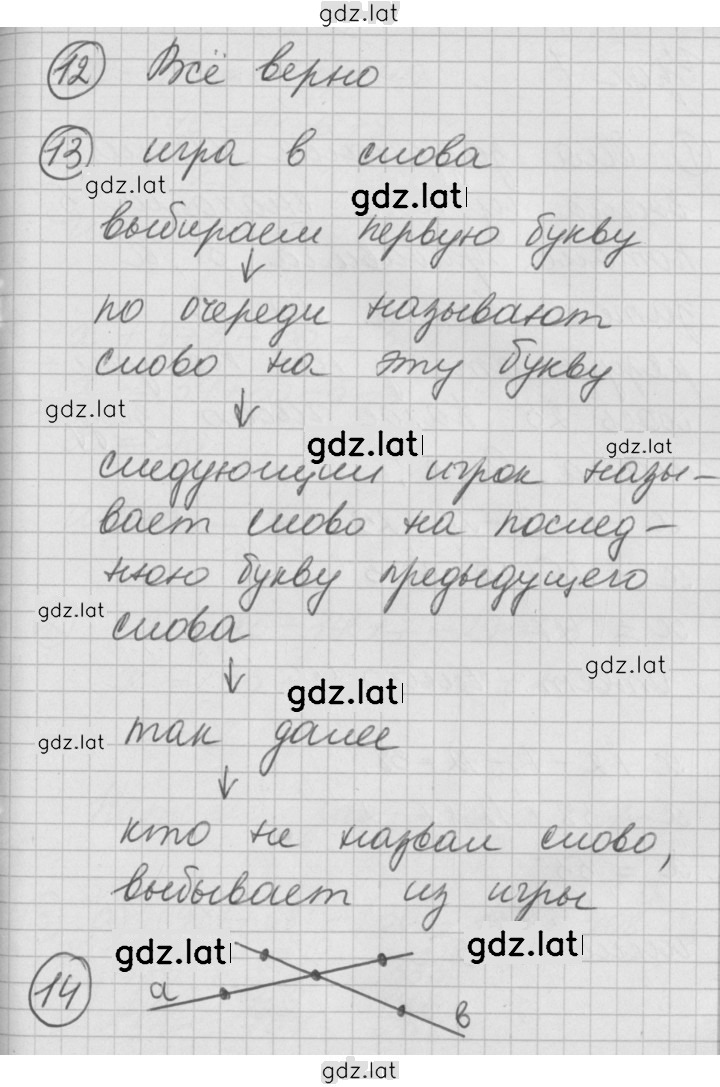 gdz.lat
12 Всё верно
13 игра в слова
gdz.lat
gdz.lat
выбираем первую букву
↓
по очереди называют
слово на эту букву
gdz.lat
↓
gdz.lat
gdz.lat
следующий игрок назы-
вает слово на послед-
нюю букву предыдущего
gdz.lat
слова
↓
gdz.lat
gdz.lat
gdz.lat
так далее
↓
кто не назвал слово,
выбывает из игры
gdz.lat
gdz.lat
14 а
в
gdz.lat